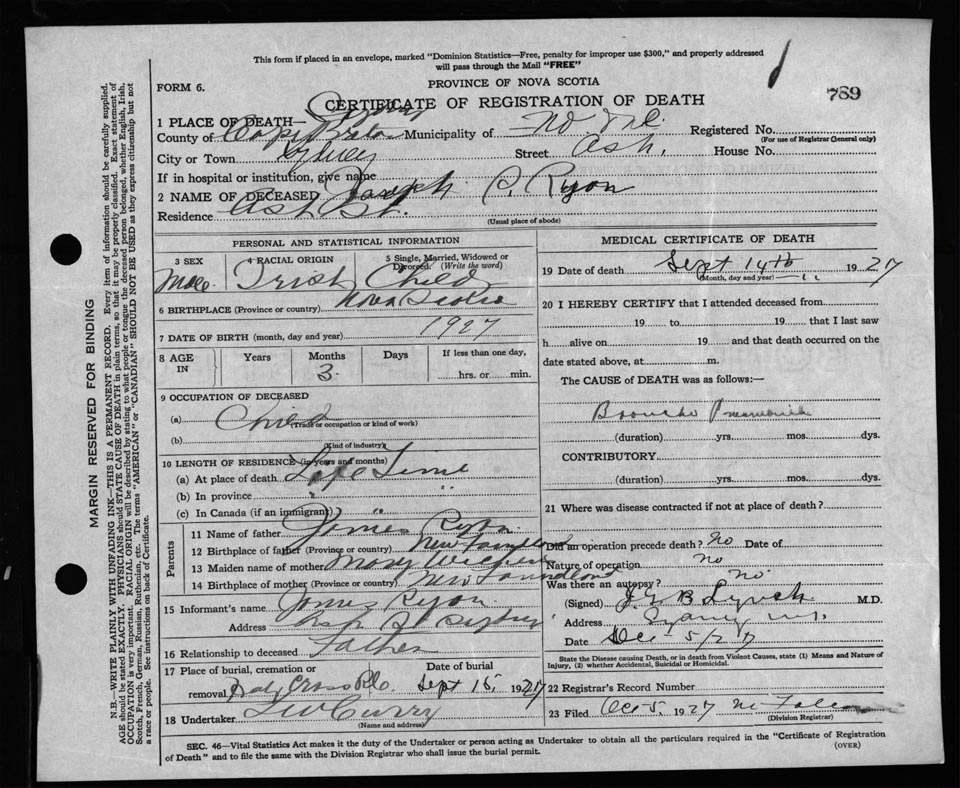 This form if placed in an envelope, marked "Dominion Statistics—Free, penalty for improper use $300," and properly addressed
will pass through the Mail "FREE"
FORM 6.
PROVINCE OF NOVA SCOTIA
789
CERTIFICATE OF REGISTRATION OF DEATH
1 PLACE OF DEATH— Sydney
County of Cape Breton Municipality of Registered No.
(For use of Registrar General only)
City or Town Sydney Street Ash. House No.
If in hospital or institution, give name
2 NAME OF DECEASED Joseph P. Ryan
Residence Ash St.
(Usual place of abode)
PERSONAL AND STATISTICAL INFORMATION
3 SEX 4 RACIAL ORIGIN 5 Single, Married, Widowed or Divorced. (Write the word)
Male Irish Child
6 BIRTHPLACE (Province or country) Nova Scotia
7 DATE OF BIRTH (month, day and year) 1927
8 AGE IN Years Months Days If less than one day,
3 hrs. or min.
9 OCCUPATION OF DECEASED
(a) Child
(Trade or occupation or kind of work)
(b)
(Kind of industry)
10 LENGTH OF RESIDENCE (in years and months)
(a) At place of death Life Time
(b) In province " "
(c) In Canada (if an immigrant) "
Parents
11 Name of father James Ryan
12 Birthplace of father (Province or country) Newfoundland
13 Maiden name of mother Mary
14 Birthplace of mother (Province or country) Newfoundland
15 Informant's name James Ryan
Address Ash St Sydney
16 Relationship to deceased Father
17 Place of burial, cremation or Date of burial
removal Holy Cross Sept 15, 1927
18 Undertaker Curry
(Name and address)
MEDICAL CERTIFICATE OF DEATH
19 Date of death Sept 14th 1927
(Month, day and year)
20 I HEREBY CERTIFY that I attended deceased from
19 to 19 that I last saw
h alive on 19 and that death occurred on the
date stated above, at m.
The CAUSE of DEATH was as follows:—
Broncho Pneumonia
(duration) yrs. mos. dys.
CONTRIBUTORY
(duration) yrs. mos. dys.
21 Where was disease contracted if not at place of death?
Did an operation precede death? No Date of
Nature of operation No
Was there an autopsy? No
(Signed) Lynch M.D.
Address Sydney N.S.
Date 5/27
State the Disease causing Death, or in death from Violent Causes, state (1) Means and Nature of
Injury, (2) whether Accidental, Suicidal or Homicidal.
22 Registrar's Record Number
23 Filed 5, 1927
(Division Registrar)
SEC. 46—Vital Statistics Act makes it the duty of the Undertaker or person acting as Undertaker to obtain all the particulars required in the "Certificate of Registration
of Death" and to file the same with the Division Registrar who shall issue the burial permit. (OVER)
MARGIN RESERVED FOR BINDING
N.B.—WRITE PLAINLY WITH UNFADING INK—THIS IS A PERMANENT RECORD. Every item of information should be carefully supplied.
AGE should be stated EXACTLY. PHYSICIANS should STATE CAUSE OF DEATH in plain terms, so that it may be properly classified. Exact statement of
OCCUPATION is very important. RACIAL ORIGIN will be described by stating to what people or tongue the deceased person belonged, whether English, Irish,
Scotch, French, German, Russian, Ruthenian, etc. The terms "AMERICAN" or "CANADIAN" SHOULD NOT BE USED as they express citizenship but not
a race or people. See instructions on back of Certificate.